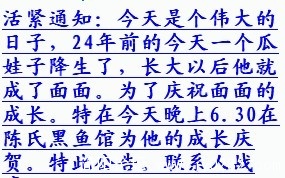 活紧通知：今天是个伟大的
日子，24年前的今天一个瓜
娃子降生了，长大以后他就
成了面面。为了庆祝面面的
成长。特在今天晚上6.30在
陈氏黑鱼馆为他的成长庆
贺。特此公告。联系人战